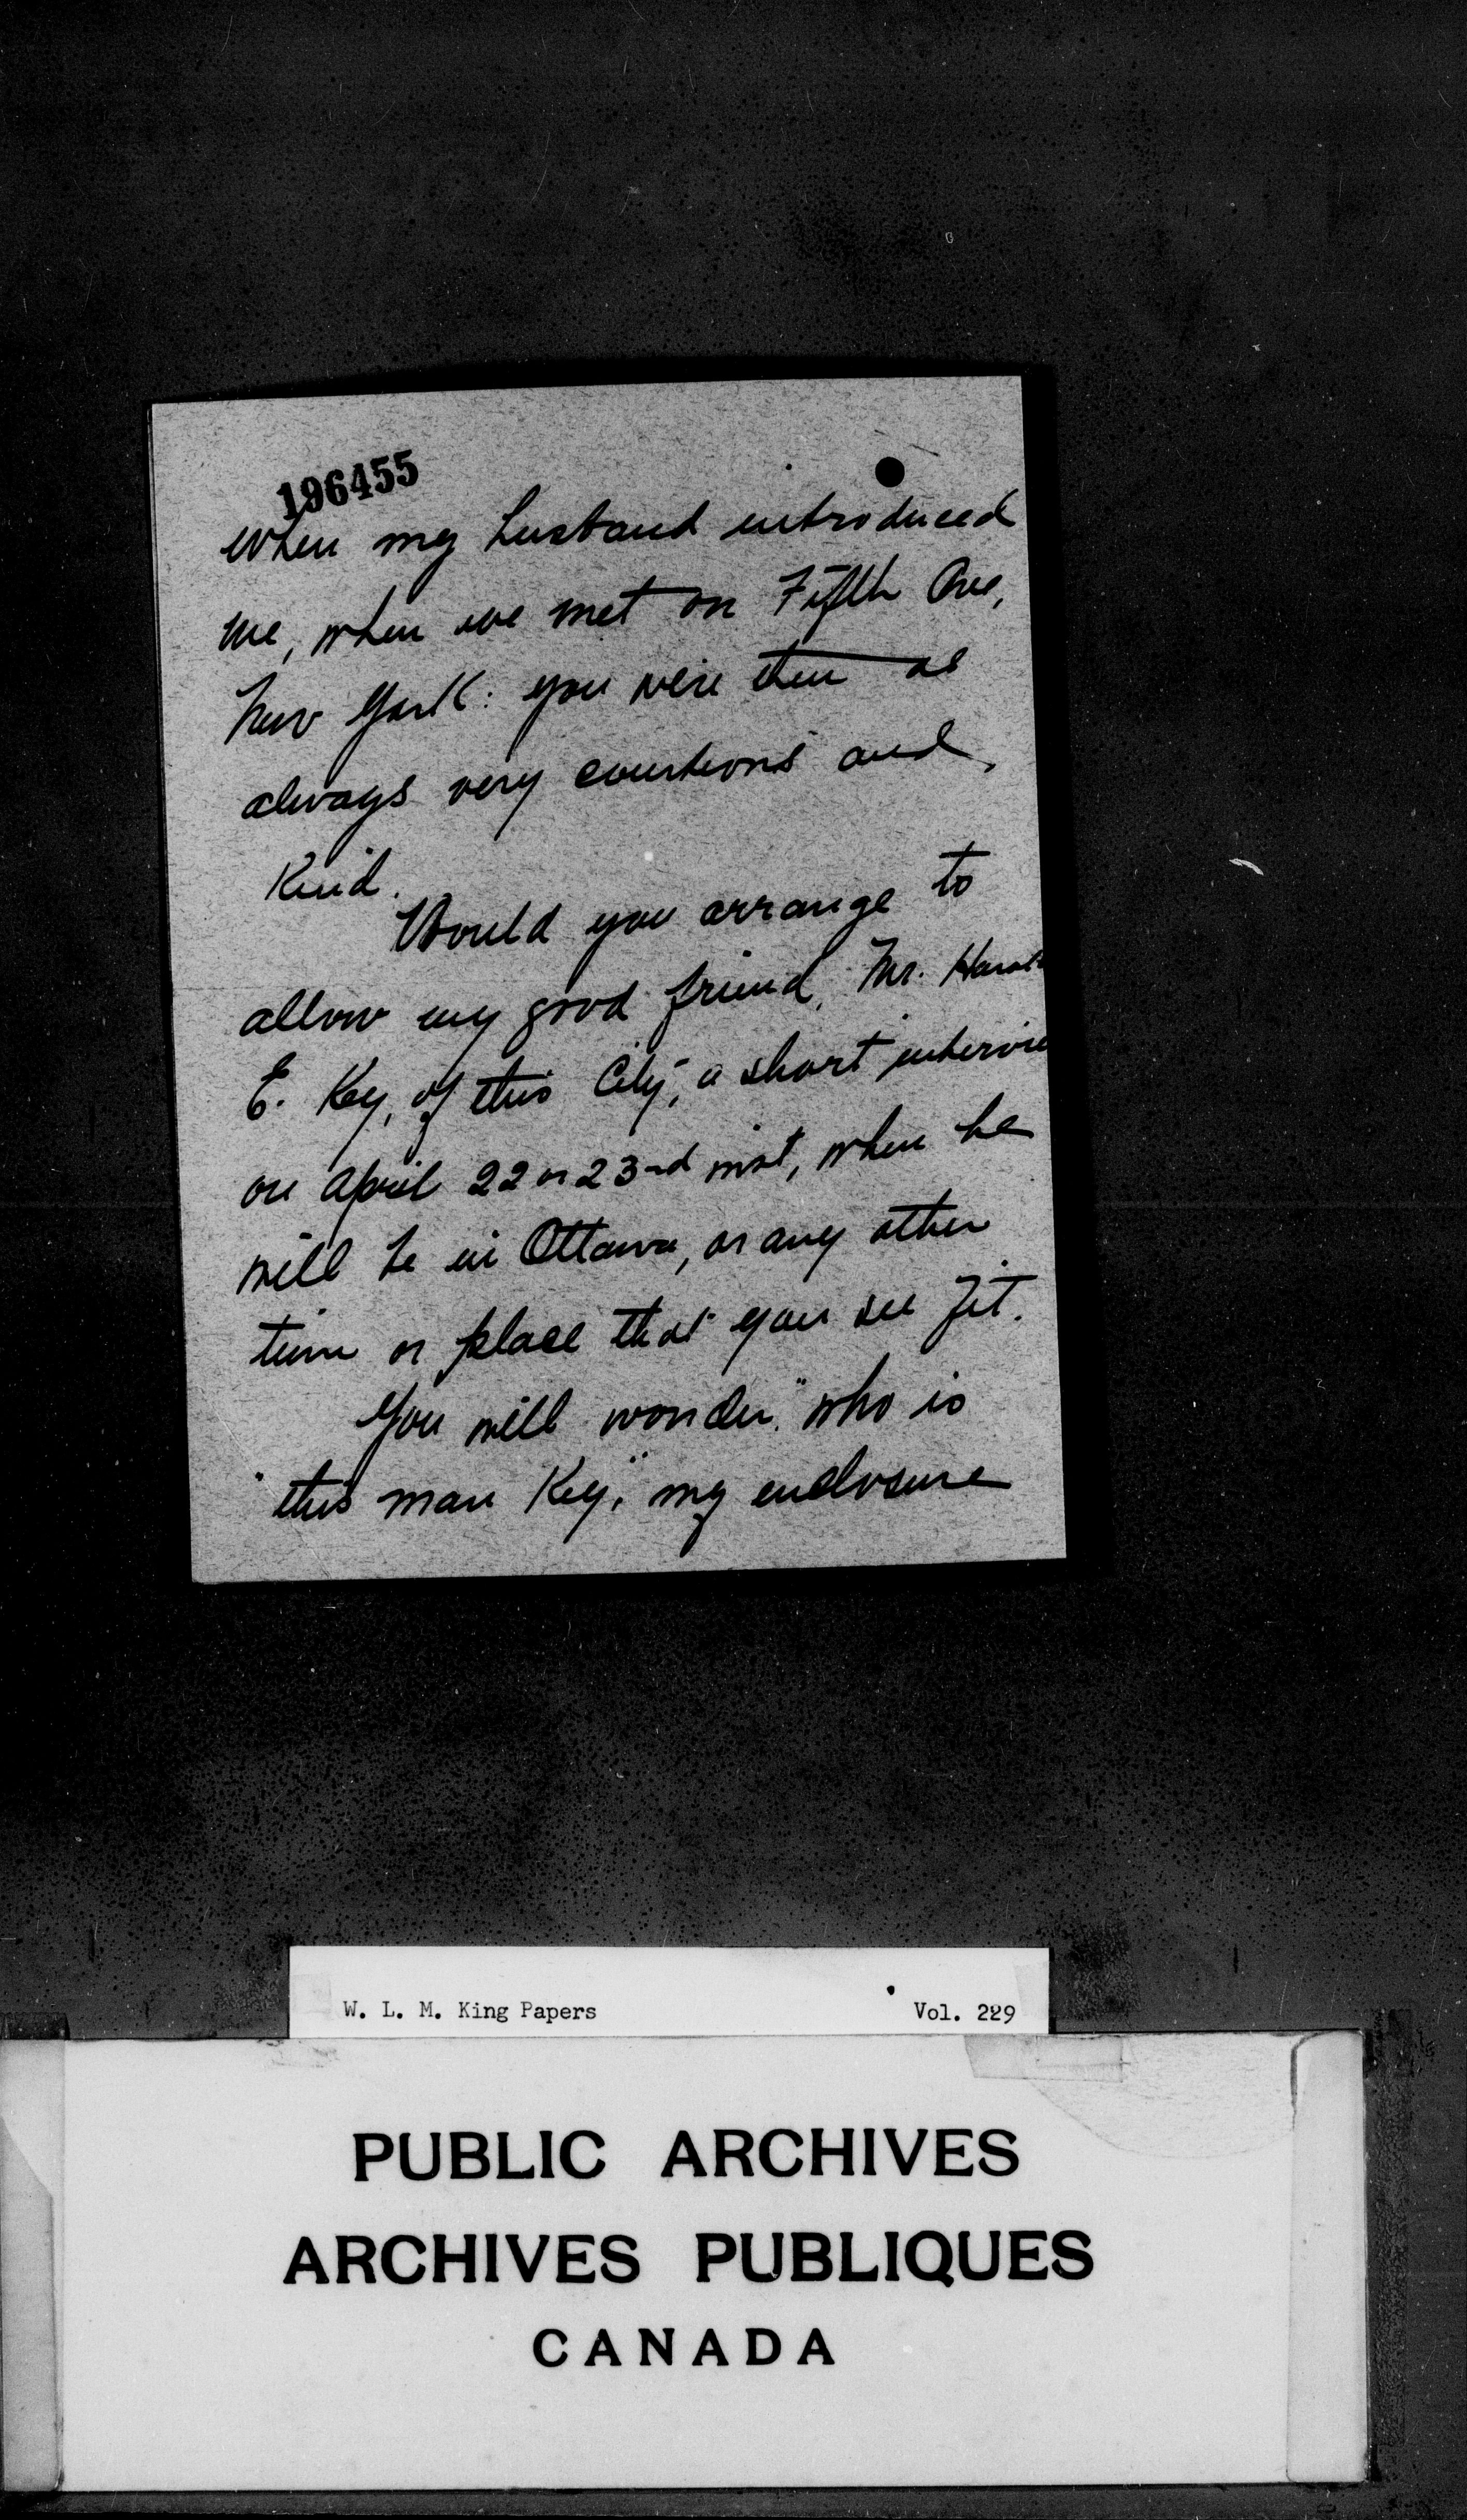 196455
when my husband introduced
me, when we met on Fifth Ave,
New York: you were then as
always very courteous and
Kind.
Would you arrange to
allow my good friend, Mr. Harold
E. Key, of this City, a short intervie
on April 22 or 23rd inst, when he
will be in Ottawa, or any other
time or place that you see fit.
You will wonder "who is
"this man Key," my enclosure
W. L. M. King Papers Vol. 229
PUBLIC ARCHIVES
ARCHIVES PUBLIQUES
CANADA